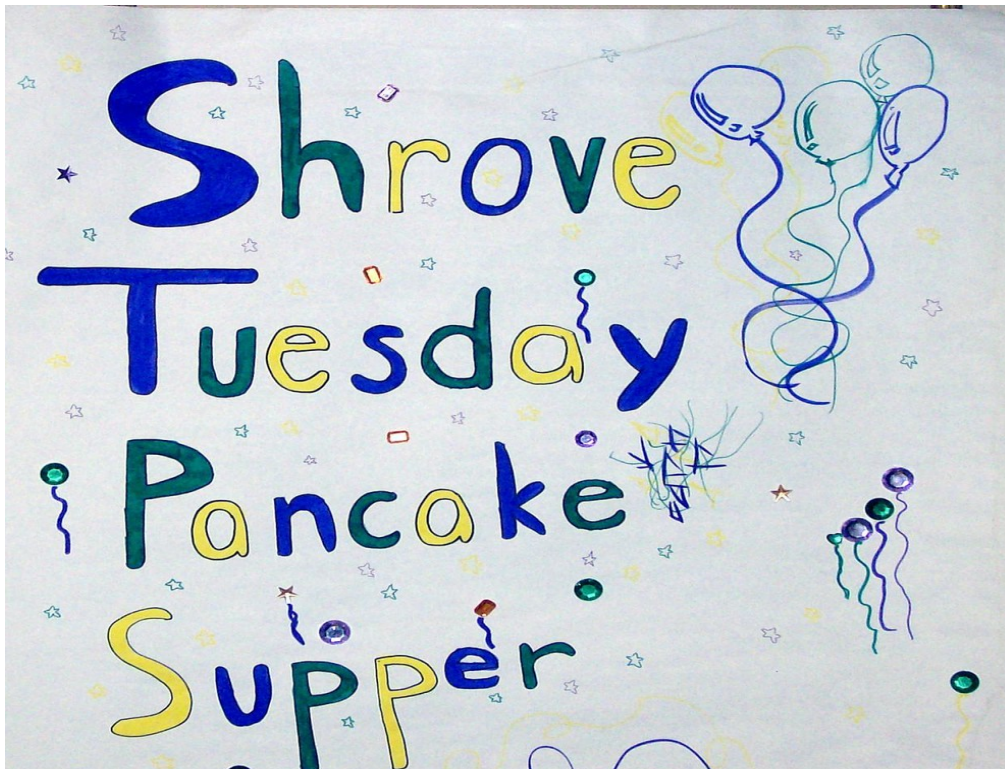 Shrove
Tuesday
Pancake
Supper